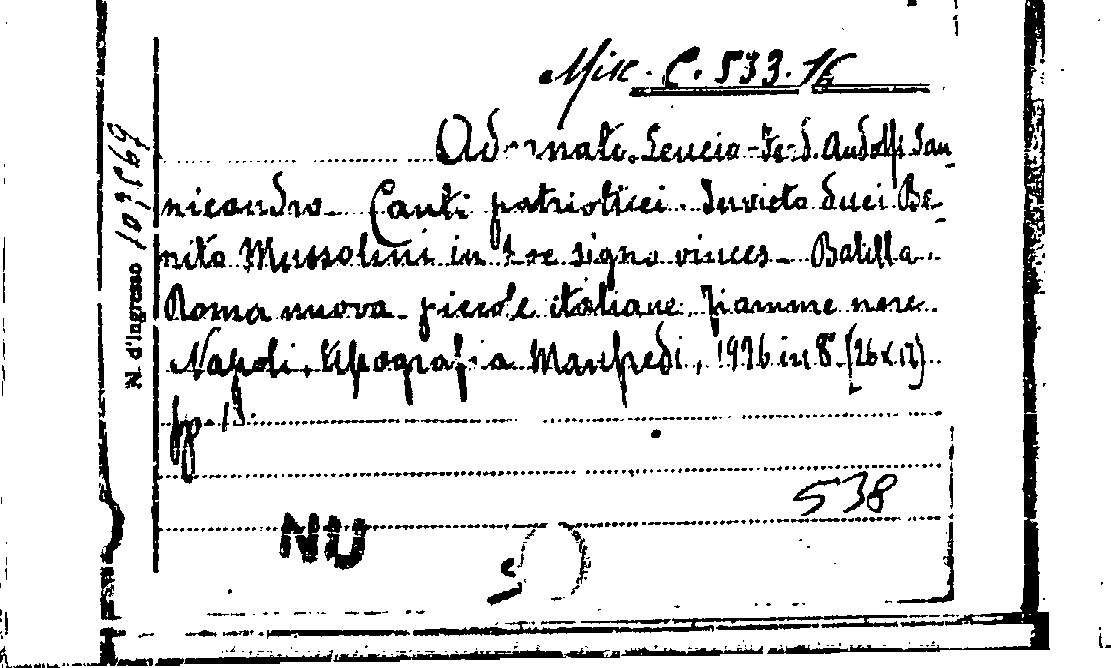 Misc. C. 533.16
Adornato. Leucio - Fe-d. Andolfi San-
nicandro. Canti patriottici. Invicto duci Be-
nito Mussolini in hoc signo vinces - Balilla.
Roma nuova - piccole italiane. Fiamme nere.
Napoli. tipografia Manfredi, in 8.
pp.
N. d'Ingresso
538
NU